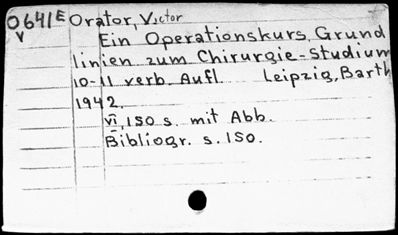 0641E Orator, Victor
V Ein Operationskurs, Grund
linien zum Chirurgie-Studium
10-11 verb. Aufl Leipzig, Barth
1942.
VI, 150 s. mit Abb.
Bibliogr. s. 150.